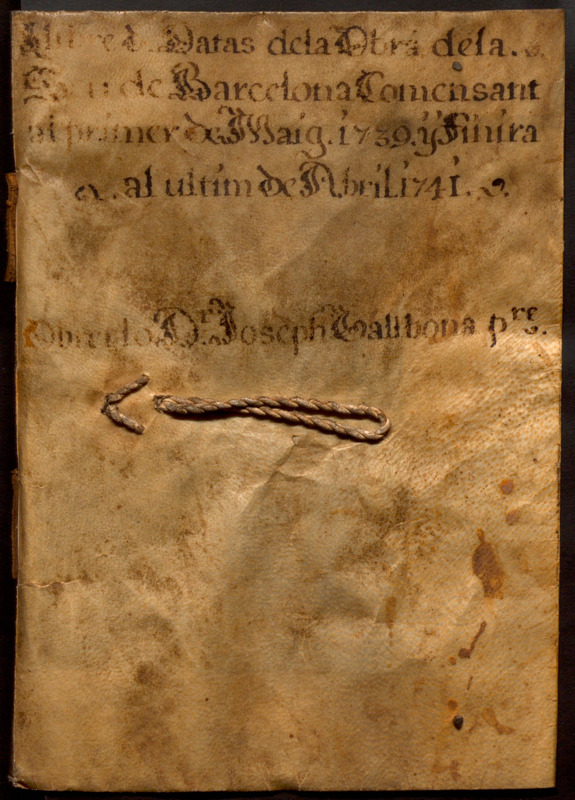 Llibre de Datas dela Obra dela.
Seu de Barcelona Comensant
al primer de Maig. 1739. ÿ Finira
al ultim de Abril. 1741.
Obrer lo Dr. Joseph Vallbona pre.